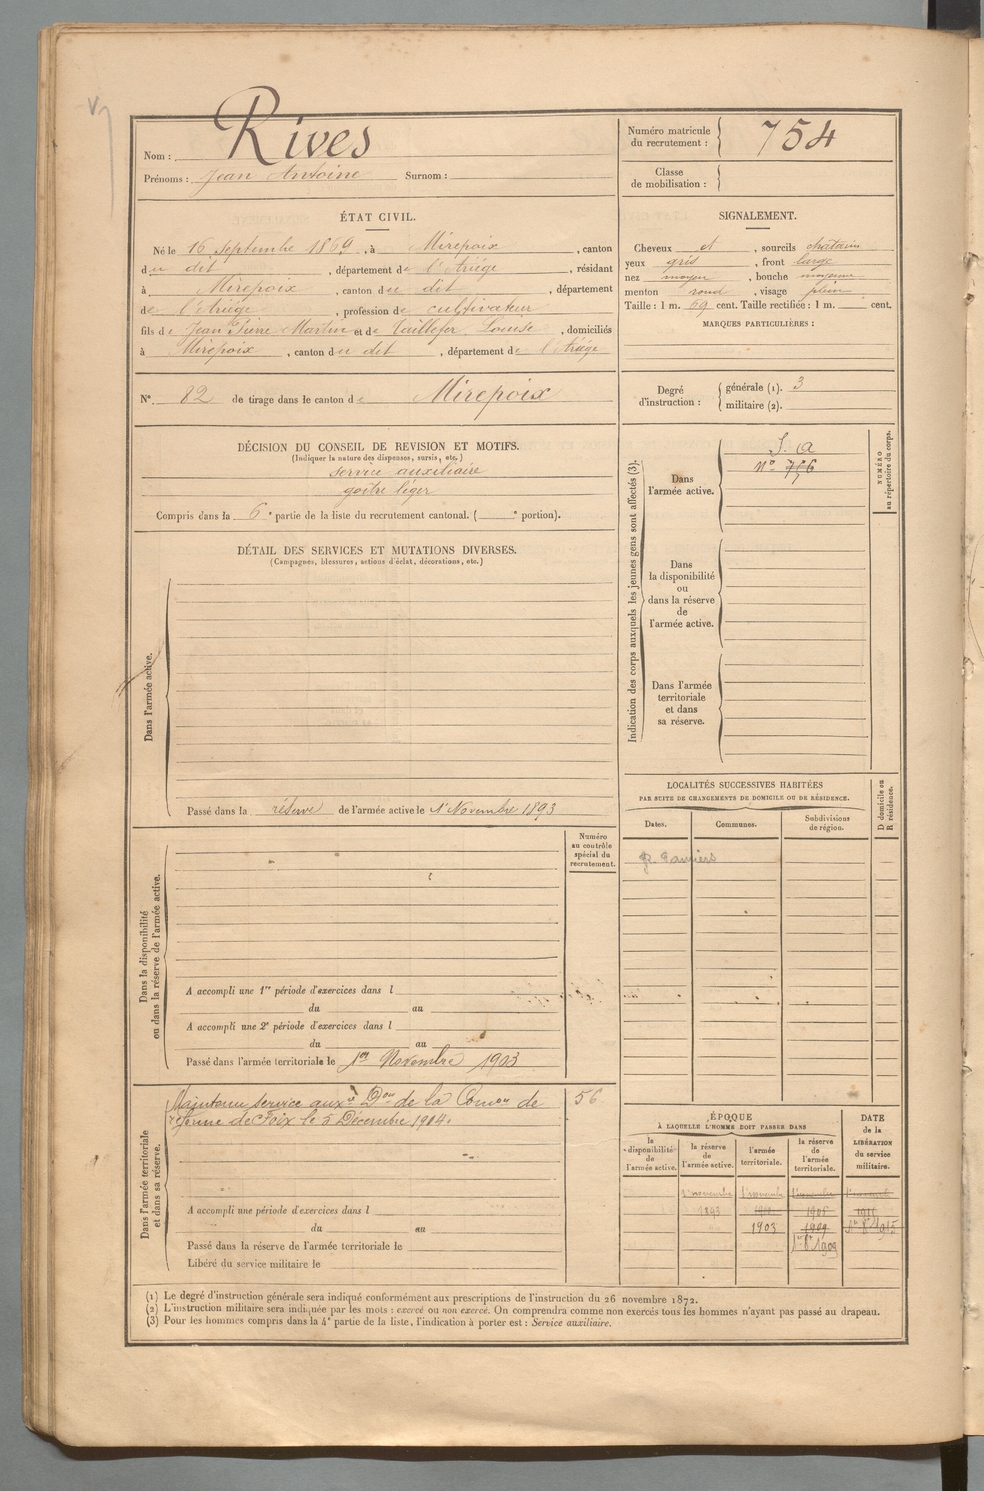 Nom : Rives
Prénoms : Jean Antoine Surnom :
Numéro matricule du recrutement : 754
Classe de mobilisation :
ÉTAT CIVIL.
Né le 16 Septembre 1869, à Mirepoix, canton
du dit, département de l'Ariége, résidant
à Mirepoix, canton du dit, département
de l'Ariége, profession de cultivateur
fils de Jean Pierre Martin et de Taillefer Louise, domiciliés
à Mirepoix, canton du dit, département de l'Ariége
SIGNALEMENT.
Cheveux et, sourcils chatains
yeux gris, front large
nez moyen, bouche moyenne
menton rond, visage plein
Taille : 1 m. 59 cent. Taille rectifiée : 1 m. cent.
MARQUES PARTICULIÈRES :
N° 82 de tirage dans le canton de Mirepoix
Degré d'instruction :
générale (1). 3
militaire (2).
DÉCISION DU CONSEIL DE REVISION ET MOTIFS.
(Indiquer la nature des dispenses, sursis, etc.)
Service auxiliaire
goître léger
Compris dans la 6e partie de la liste du recrutement cantonal. ( e portion).
Indication des corps auxquels les jeunes gens sont affectés (3).
NUMÉRO au répertoire du corps.
Dans l'armée active.
S. A
N°
Dans la disponibilité ou dans la réserve de l'armée active.
Dans l'armée territoriale et dans sa réserve.
DÉTAIL DES SERVICES ET MUTATIONS DIVERSES.
(Campagnes, blessures, actions d'éclat, décorations, etc.)
Dans l'armée active.
Passé dans la réserve de l'armée active le 1er Novembre 1893
Numéro au contrôle spécial du recrutement.
Dans la disponibilité ou dans la réserve de l'armée active.
A accompli une 1re période d'exercices dans l
du au
A accompli une 2e période d'exercices dans l
du au
Passé dans l'armée territoriale le 1er Novembre 1903
LOCALITÉS SUCCESSIVES HABITÉES
PAR SUITE DE CHANGEMENTS DE DOMICILE OU DE RÉSIDENCE.
Dates. Communes. Subdivisions de région. D domicile ou R résidence.
R. Pamiers
Dans l'armée territoriale et dans sa réserve.
Maintenu service auxre Don de la Comon de 56
réforme de Foix le 5 Décembre 1904.
A accompli une période d'exercices dans l
du au
Passé dans la réserve de l'armée territoriale le
Libéré du service militaire le
ÉPOQUE
À LAQUELLE L'HOMME DOIT PASSER DANS
la disponibilité de l'armée active.
la réserve de l'armée active.
l'armée territoriale.
la réserve de l'armée territoriale.
DATE de la LIBÉRATION du service militaire.
1er novembre 1er novembre 1er novembre
1893
1903 1909 1er 8bre 1915
1er 8bre 1909
(1) Le degré d'instruction générale sera indiqué conformément aux prescriptions de l'instruction du 26 novembre 1872.
(2) L'instruction militaire sera indiquée par les mots : exercé ou non exercé. On comprendra comme non exercés tous les hommes n'ayant pas passé au drapeau.
(3) Pour les hommes compris dans la 4e partie de la liste, l'indication à porter est : Service auxiliaire.